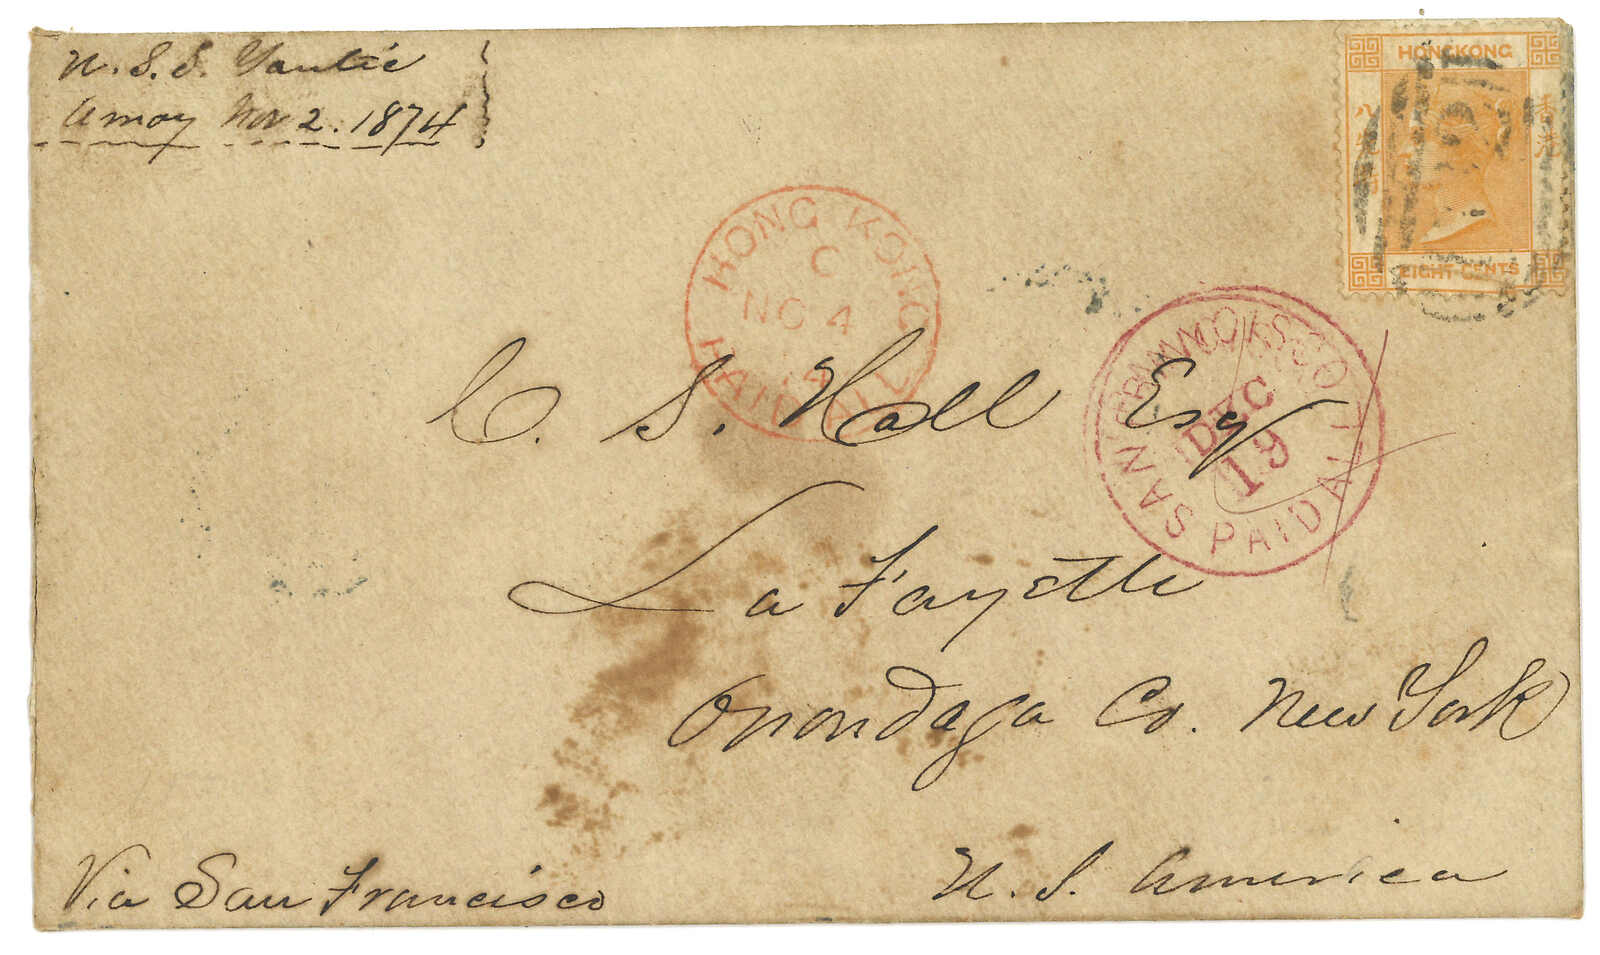 U.S.S. Yantic
Amoy Nov 2. 1874
HONGKONG
香港
八先時
EIGHT CENTS
HONG KONG
C
NO 4
74
PAID ALL
SAN FRANCISCO
DEC
19
PAID ALL
C. S. Hall Esq
La Fayette
Onondaga Co. New York
U. S. America
Via San Francisco